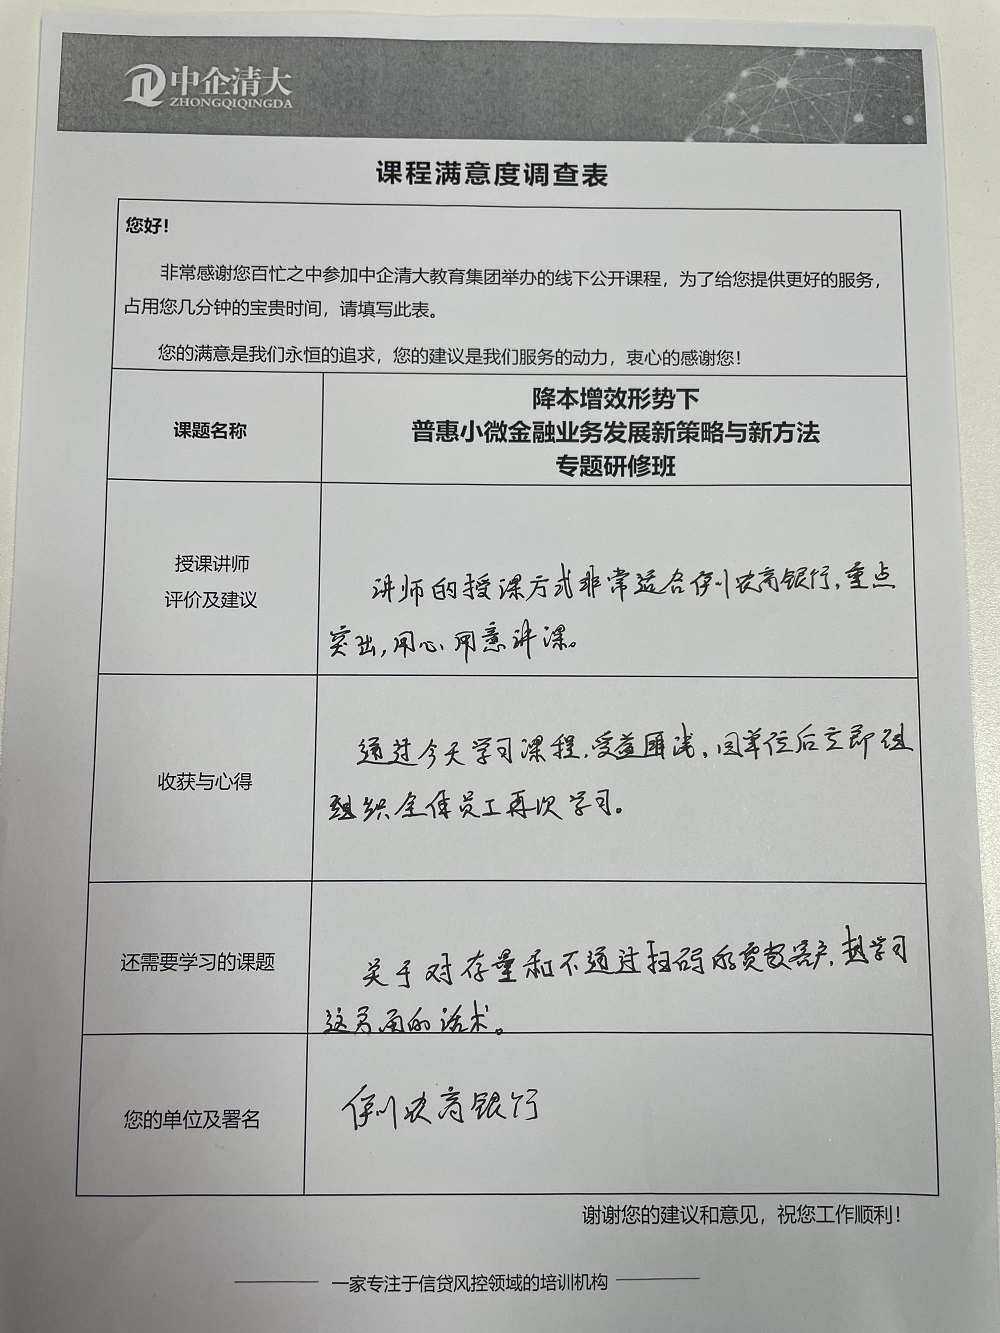 中企清大
ZHONGQIQINGDA
课程满意度调查表
您好！
非常感谢您百忙之中参加中企清大教育集团举办的线下公开课程，为了给您提供更好的服务，
占用您几分钟的宝贵时间，请填写此表。
您的满意是我们永恒的追求，您的建议是我们服务的动力，衷心的感谢您！
课题名称
降本增效形势下
普惠小微金融业务发展新策略与新方法
专题研修班
授课讲师
评价及建议
讲师的授课方式非常适合伊川农商银行，重点
突出，用心、用意讲课。
收获与心得
通过今天学习课程，受益匪浅，回单位后立即组
组织全体员工再次学习。
还需要学习的课题
关于对存量和不通过扫码的贷款客户，想学习
这方面的话术。
您的单位及署名
伊川农商银行
谢谢您的建议和意见，祝您工作顺利！
一家专注于信贷风控领域的培训机构